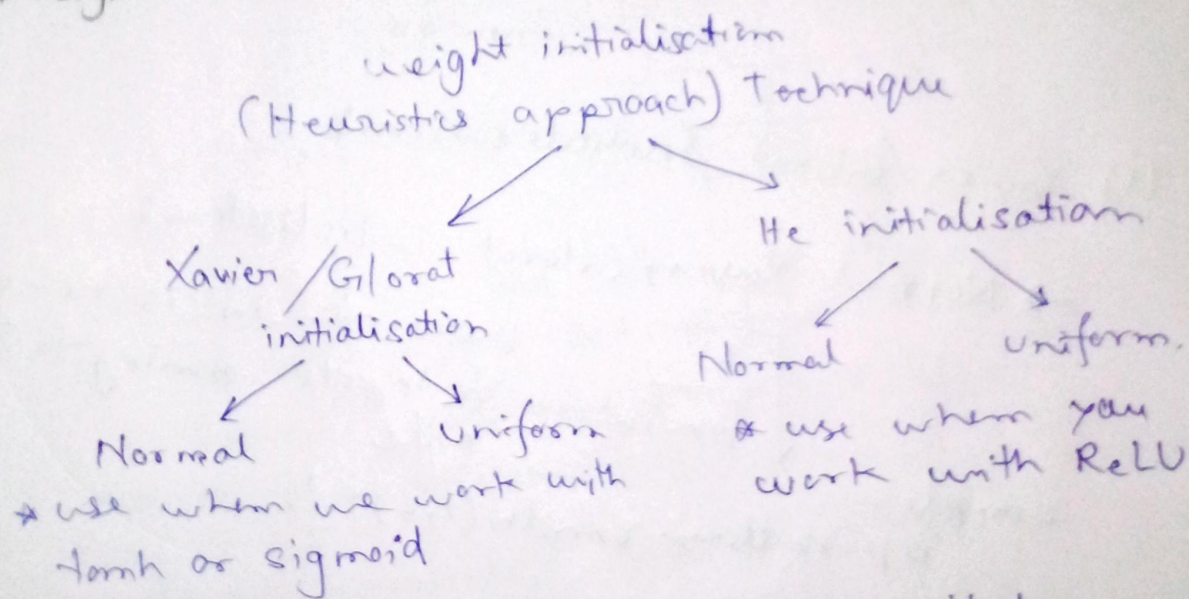 weight initialisation
(Heuristics approach) Technique
Xavier / Glorat
initialisation
Normal
uniform
* use when we work with
tanh or sigmoid
He initialisation
Normal
uniform.
* use when you
work with ReLU